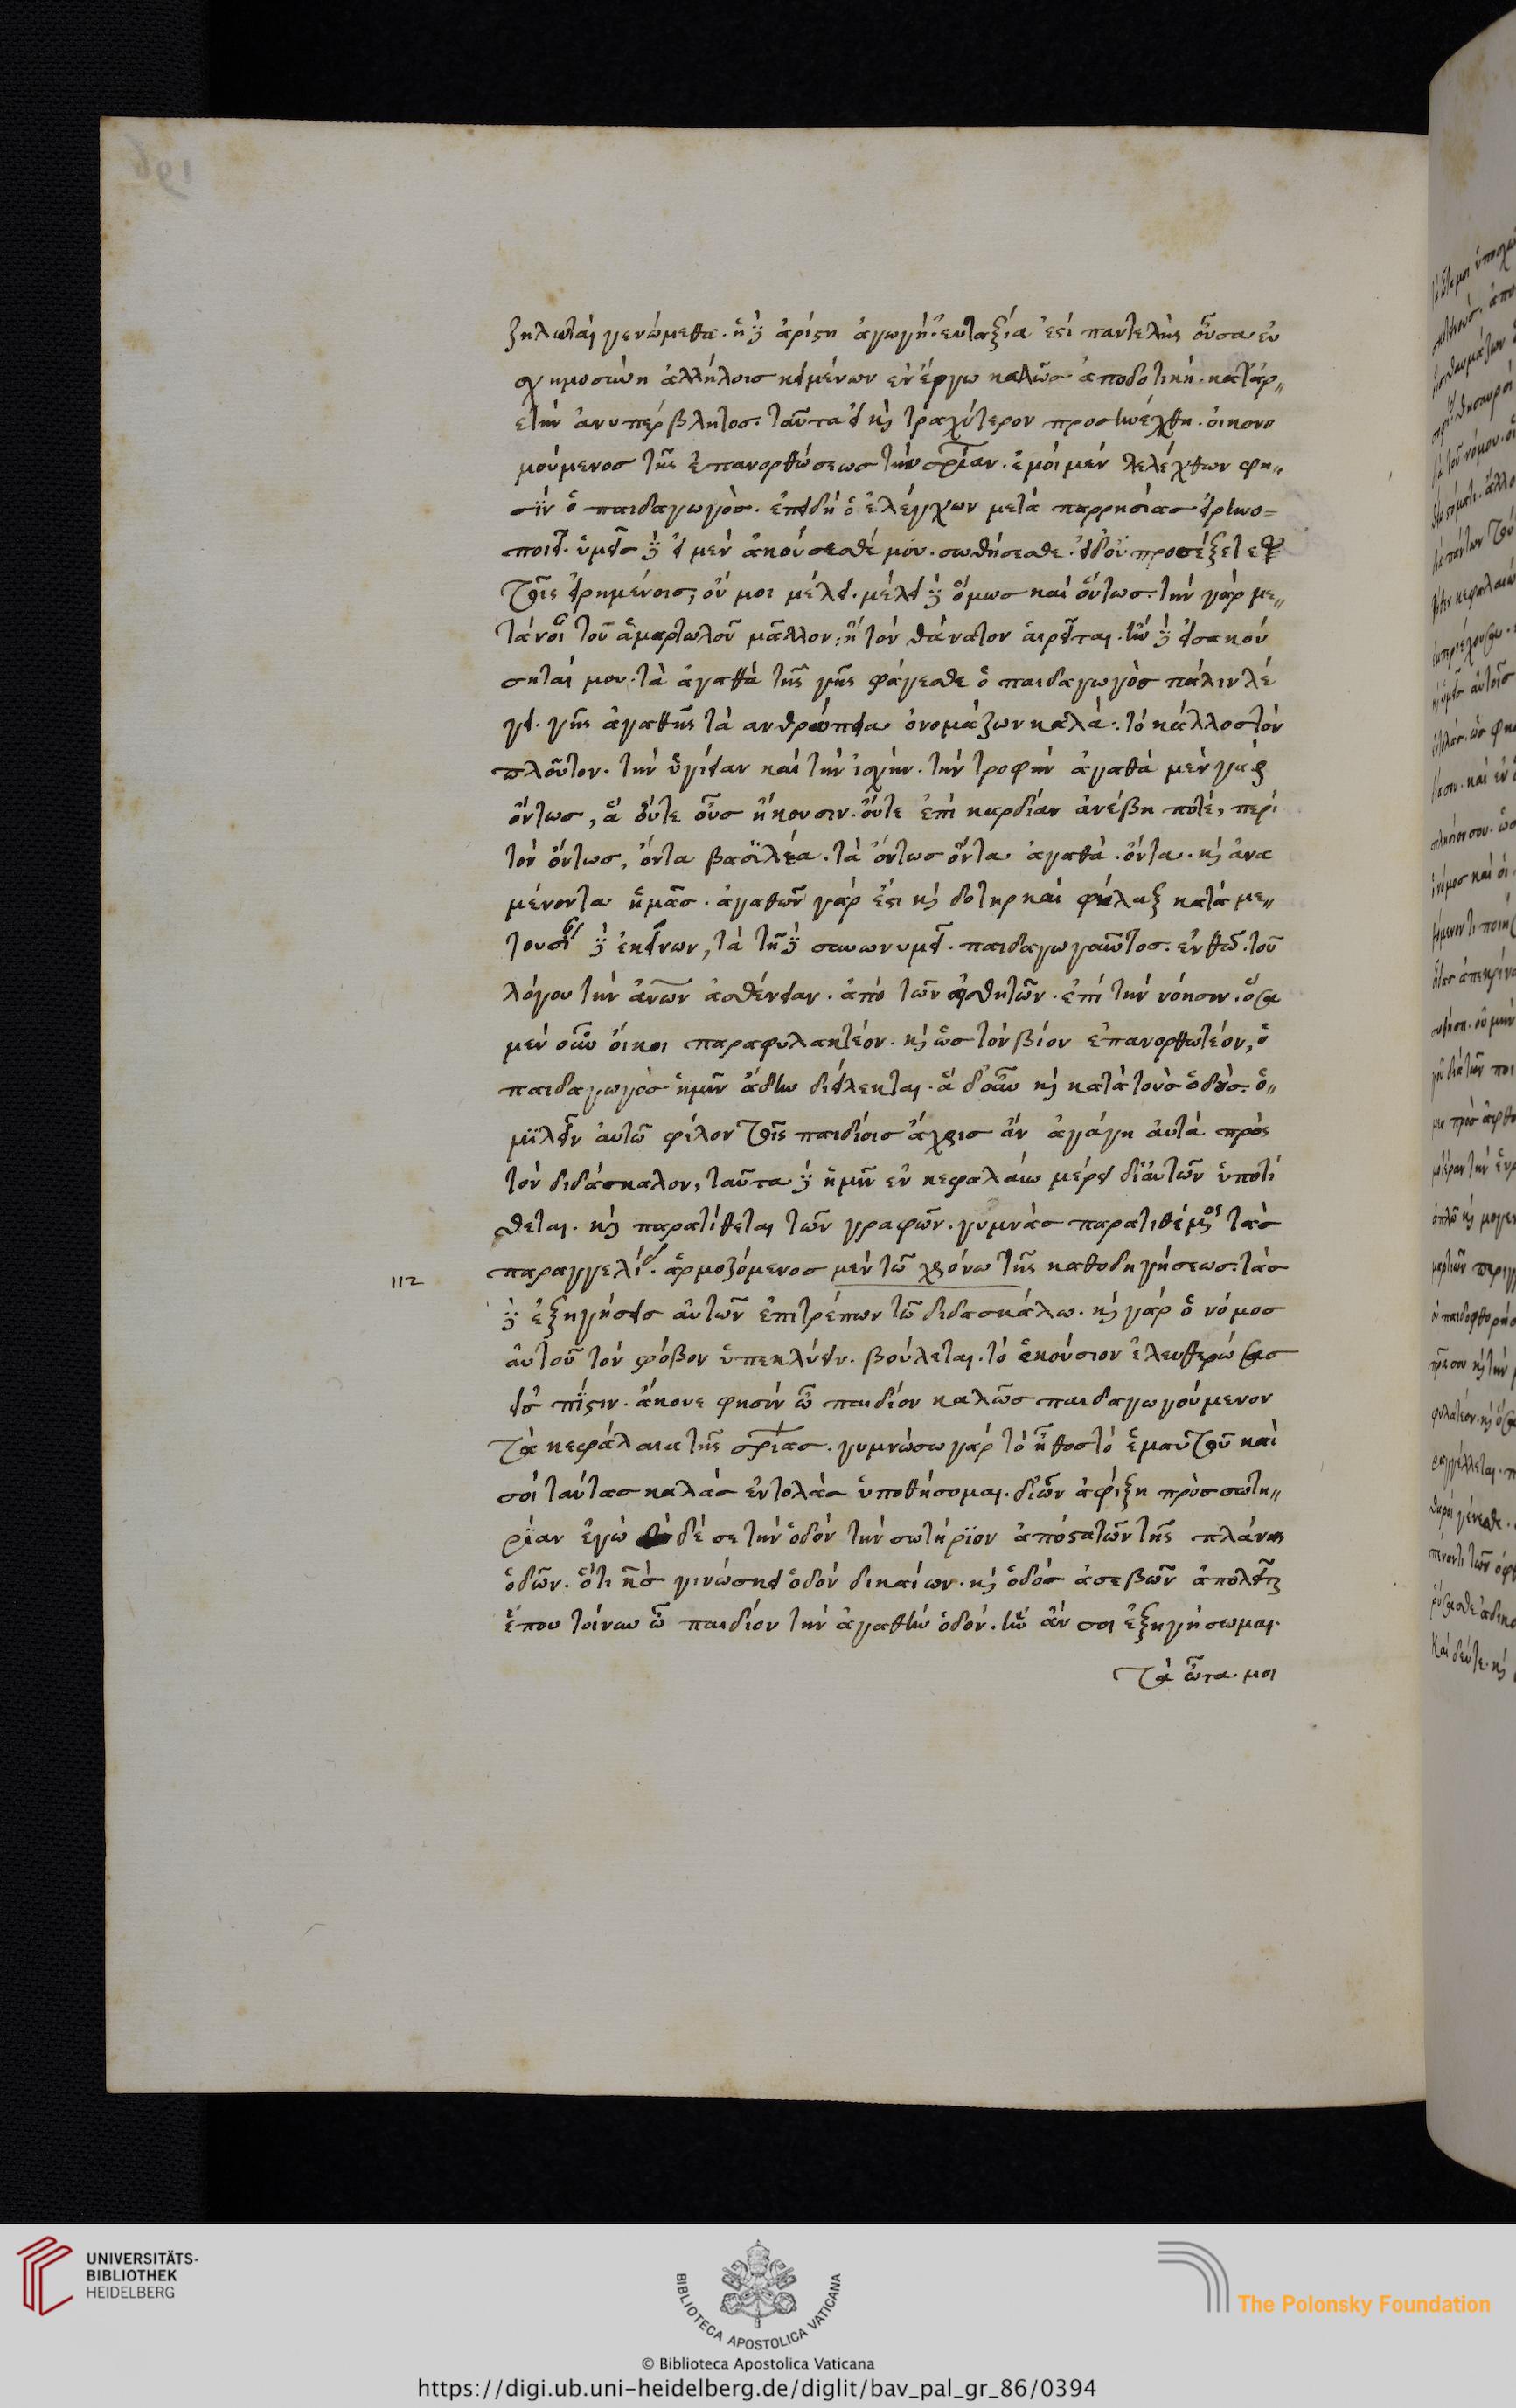 ζηλωταὶ γενώμεθα. ἡ δὲ ἀρίστη ἀγωγὴ. ευταξία ἐστὶ παντελὴς οὖσα ευ
σχημοσύνη ἀλλήλοισ κειμένων εν ἔργω καλῶς ἀποδοτικὴ. κατ' ἀρ„
ετὴν ἀνυπέρβλητος. ταῦτα εἰ καὶ τραχύτερον προσηνέχθη. οἰκονο
μούμενοσ τῆς ἐπανορθώσεως τὴν σρίαν. ἐμοὶ μὲν λελέχθων φη„
σὶν ὁ παιδαγωγὸσ. ἐπειδὴ ὁ ἐλέγχων μετὰ παρρησίασ εἰρηνο=
ποιεῖ. ὑμεῖς δὲ εἰ μὲν ἀκούσεσθέ μου. σωθήσεσθε. εἰ δ' οὐ προσέξετε
τοῖς εἰρημένοισ, οὔ μοι μέλει. μέλει δὲ ὅμωσ καὶ οὕτωσ. τὴν γὰρ με„
τάνοι τοῦ ἁμαρτωλοῦ μᾶλλον. ἢ τὸν θάνατον αἱρεῖται. ἢν δὲ εἰσακού
σηταί μου. τὰ ἀγαθὰ τῆς γῆς φάγεσθε ὁ παιδαγωγὸσ πάλιν λέ
γει. γῆς ἀγαθῆς τὰ ανθρώπεια ὀνομάζων καλὰ. τὸ κάλλοσ τὸν
πλοῦτον. τὴν ὑγίειαν καὶ τὴν ἰσχὺν. τὴν τροφὴν ἀγαθὰ μὲν γὰρ
ὄντωσ, ἃ οὔτε οὖσ ἤκουσιν. οὔτε ἐπὶ καρδίαν ἀνέβη ποτέ, περὶ
τὸν ὄντωσ, ὄντα βασιλέα. τὰ ὄντωσ ὄντα ἀγαθὰ. ὄντα. καὶ ἀνα
μένοντα ἡμᾶσ. ἀγαθῶν γάρ ἐστι καὶ δοτηρ καὶ φύλαξ κατὰ με„
τουσί δὲ ἐκείνων, τὰ τῆδε συνωνυμεῖ. παιδαγωγοῦντοσ. ἐνθέω. τοῦ
λόγου τὴν ἀνων ἀσθένειαν. ἀπὸ τῶν αἰσθητῶν. ἐπὶ τὴν νόησιν. ὅσα
μὲν οὖν οἴκοι παραφυλακτέον. καὶ ὡσ τὸν βίον ἐπανορθωτέον, ὁ
παιδαγωγὸσ ἡμῖν ἄδην διείλεκται. ἃ δ' οὖν καὶ κατὰ τοὺσ ὁδοὺσ. ὁ„
μιλεῖν αὐτῶ φίλον τοῖς παιδίοισ ἄχρισ ἂν ἀγάγη ἀυτὰ πρὸς
τὸν διδάσκαλον, ταῦτα δὲ ἡμῖν ἐν κεφαλαίω μέρει δι' ἀυτῶν ὑποτί
θεται. καὶ παρατίθεται τῶν γραφῶν. γυμνὰσ παρατιθέμενος τὰσ
παραγγελί. ἁρμοζόμενοσ μὲν τῶ χρόνω τῆς καθοδηγήσεωσ. τὰσ
112
δὲ ἐξηγήσεις ἀυτῶν ἐπιτρέπων τῶ διδασκάλω. καὶ γὰρ ὁ νόμοσ
ἀυτοῦ τὸν φόβον ὑπεκλύειν. βούλεται. τὸ ἑκούσιον ἐλευθερώσασ
εἰσ πίστιν. ἄκουε φησὶν ὦ παιδίον καλῶσ παιδαγωγούμενον
τὰ κεφάλαια τῆς σρίασ. γυμνώσω γὰρ τὸ ἦθοσ τὸ ἐμαυτοῦ καὶ
σοὶ ταύτασ καλὰσ ἐντολὰσ ὑποθήσομαι. δι' ὧν ἀφίξη πρὸσ σωτη„
ρίαν ἐγὼ δέ σε τὴν ὁδὸν τὴν σωτήριον ἀπόστα τῶν τῆς πλάνης
ὁδῶν. ὅτι κσ γινώσκει ὁδὸν δικαίων. καὶ ὁδὸσ ἀσεβῶν ἀπολεῖται
ἕπου τοίνυν ὦ παιδίον τὴν ἀγαθὴν ὁδὸν. ἣν ἄν σοι ἐξηγήσωμαι.
Τὰ ὦτα. μοι
UNIVERSITÄTS-
BIBLIOTHEK
HEIDELBERG
BIBLIOTECA APOSTOLICA VATICANA
The Polonsky Foundation
© Biblioteca Apostolica Vaticana
https://digi.ub.uni-heidelberg.de/diglit/bav_pal_gr_86/0394